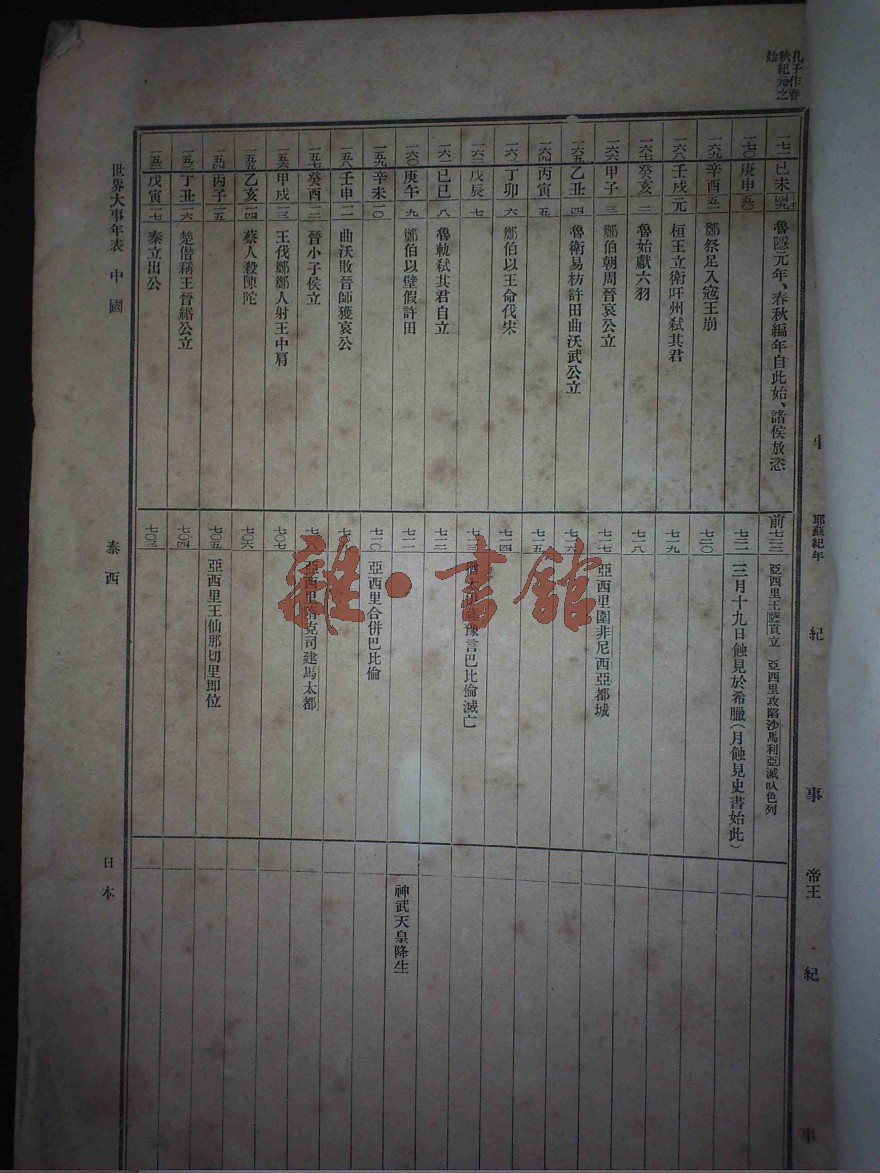 孔子作春
秋紀元之
始
耶蘇紀年
紀
事
帝王
紀
事
己未
魯隱元年、春秋編年自此始、諸侯放恣
前七二二
亞西里王薩貢立 亞西里攻陷沙馬利亞滅以色列
一七〇
庚申
五〇
七二一
三月十九日蝕見於希臘(月蝕見史書始此)
一六九
辛酉
五一
鄭祭足入寇王崩
七二〇
一六八
壬戌
元
桓王立衛吁州弑其君
七一九
一六七
癸亥
二
魯始獻六羽
七一八
一六六
甲子
三
鄭伯朝周晉哀公立
七一七
亞西里圍非尼西亞都城
一六五
乙丑
四
魯衛易枋許田曲沃武公立
七一六
一六四
丙寅
五
七一五
一六三
丁卯
六
鄭伯以王命伐宋
七一四
一六二
戊辰
七
七一三
豫言巴比倫滅亡
一六一
己巳
八
魯軌弑其君自立
七一二
一六〇
庚午
九
鄭伯以壁假許田
七一一
神武天皇降生
一五九
辛未
一〇
七一〇
亞西里合併巴比倫
一五八
壬申
一一
曲沃敗晉師獲哀公
一五七
癸酉
一二
晉小子侯立
七〇八
亞西里 克司建馬太都
一五六
甲戌
一三
王伐鄭鄭人射王中肩
七〇七
一五五
乙亥
一四
蔡人殺陳陀
七〇六
一五四
丙子
一五
七〇五
亞西里王仙那切里即位
一五三
丁丑
一六
楚僭稱王晉緡公立
七〇四
一五二
戊寅
一七
秦立出公
七〇三
世界大事年表 中國
泰西
日本
雜·書館